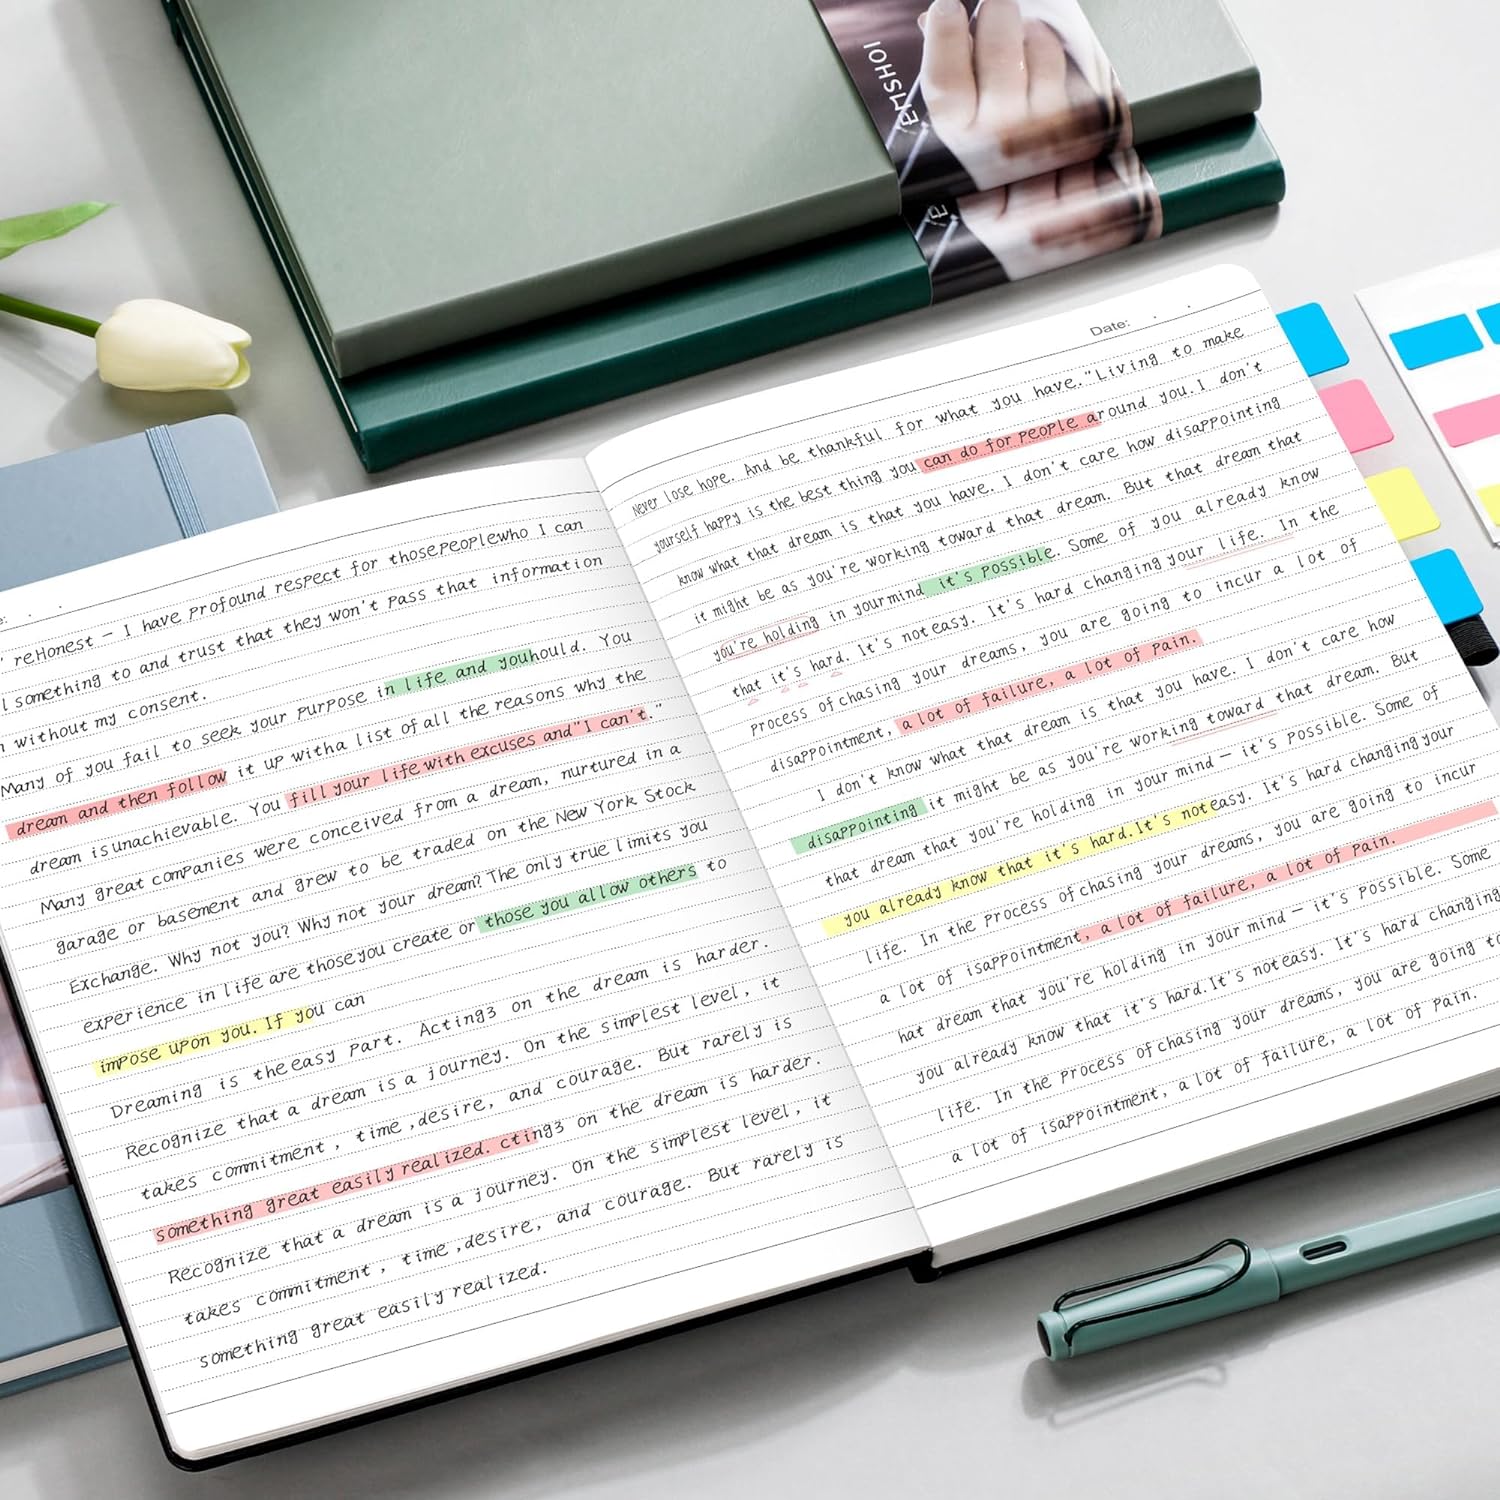 EMSHOI
e:
' reHonest – I have profound respect for thosepeoplewho I can
l something to and trust that they won't pass that information
n without my consent.
Many of you fail to seek your purpose in life and youhould. You
dream and then follow it up witha list of all the reasons why the
dream isunachievable. You fill your life with excuses and"I can't."
Many great companies were conceived from a dream, nurtured in a
garage or basement and grew to be traded on the New York Stock
Exchange. Why not you? Why not your dream? The only true limits you
experience in life are thoseyou create or those you allow others to
impose upon you. If you can
Dreaming is theeasy part. Acting3 on the dream is harder.
Recognize that a dream is a journey. On the simplest level, it
takes commitment, time,desire, and courage. But rarely is
something great easily realized. cting3 on the dream is harder.
Recognize that a dream is a journey. On the simplest level, it
takes commitment, time,desire, and courage. But rarely is
something great easily realized.
Date:
Never lose hope. And be thankful for what you have."Living to make
yourself happy is the best thing you can do for people around you.I don't
know what that dream is that you have. I don't care how disappointing
it might be as you're working toward that dream. But that dream that
you're holding in yourmind it's possible. Some of you already know
that it's hard. It's noteasy. It's hard changing your life. In the
process ofchasing your dreams, you are going to incur a lot of
disappointment, a lot of failure, a lot of pain.
I don't know what that dream is that you have. I don't care how
disappointing it might be as you're working toward that dream. But
that dream that you're holding in your mind – it's possible. Some of
you already know that it's hard.It's noteasy. It's hard changing your
life. In the process ofchasing your dreams, you are going to incur
a lot of isappointment, a lot of failure, a lot of pain.
hat dream that you're holding in your mind – it's possible. Some
you already know that it's hard.It's noteasy. It's hard changing
life. In the process ofchasing your dreams, you are going to
a lot of isappointment, a lot of failure, a lot of pain.